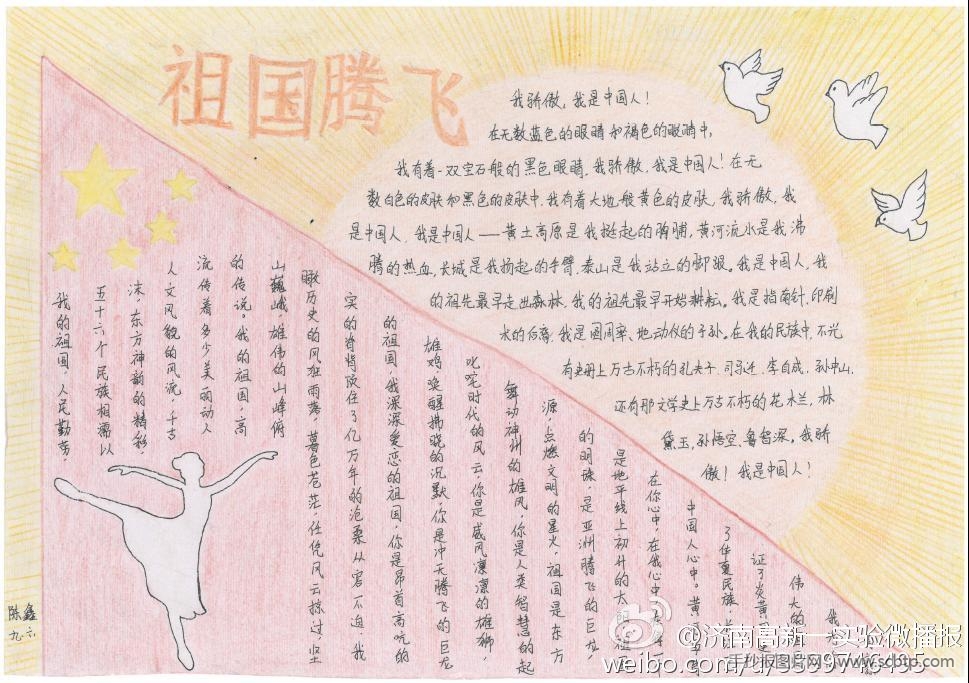 祖国腾飞
我骄傲，我是中国人！
在无数蓝色的眼睛和褐色的眼睛中，
我有着一双宝石般的黑色眼睛，我骄傲，我是中国人！在无
数白色的皮肤和黑色的皮肤中，我有着大地般黄色的皮肤，我骄傲，我
是中国人，我是中国人——黄土高原是我挺起的胸脯，黄河流水是我沸
腾的热血，长城是我扬起的手臂，泰山是我站立的脚跟。我是中国人，我
的祖先最早走出森林，我的祖先最早开始耕耘。我是指南针，印刷
术的后裔，我是圆周率、地动仪的子孙。在我的民族中，不光
有史册上万古不朽的孔夫子，司马迁，李自成，孙中山，
还有那文学史上万古不朽的花木兰，林
黛玉，孙悟空，鲁智深。我骄
傲！我是中国人！
我的祖国，人民勤劳，
五十六个民族相濡以
沫，东方神韵的精彩，
人文风貌的风流，千古
流传着多少美丽动人
的传说。我的祖国，高
山巍峨，雄伟的山峰俯
瞰历史的风狂雨落，暮色苍茫，任凭风云掠过，坚
实的脊背顶住了亿万年的沧桑从容不迫。我
的祖国，我深深爱恋的祖国，你是昂首高吭的
雄鸡，唤醒拂晓的沉默，你是冲天腾飞的巨龙
叱咤时代的风云，你是威风凛凛的雄狮，
舞动神州的雄风，你是人类智慧的起
源，点燃文明的星火，祖国是东方
的明珠，是亚洲腾飞的巨龙，
是地平线上初升的太
在你心中，在我心中
中国人心中。黄
了华夏民族，长
证了炎黄
伟大的
我
陈鑫
九.六
@济南高新一实验微播报
手抄报图片网©www.scbtp.com